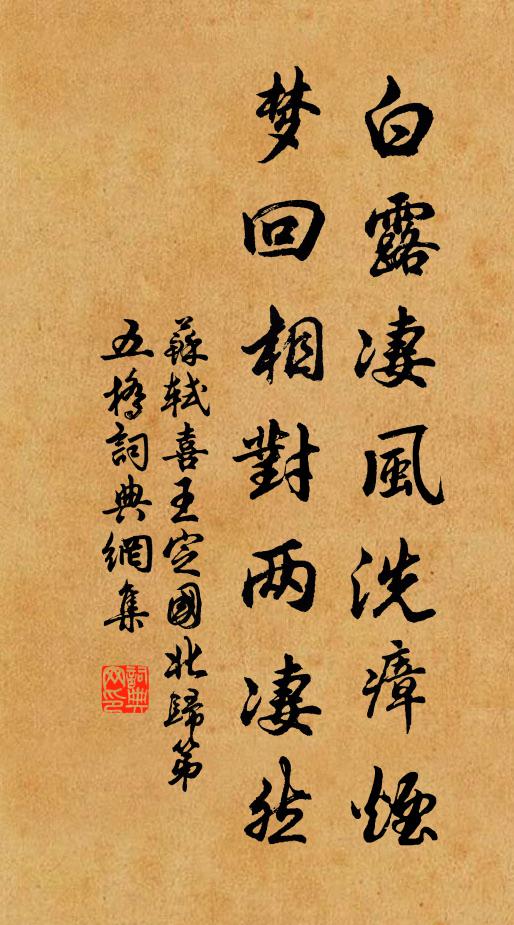 白露凄風洗瘴煙
梦回相對两凄然
蘇軾喜王定國北歸第
五橋詞典網集
詞典
网印